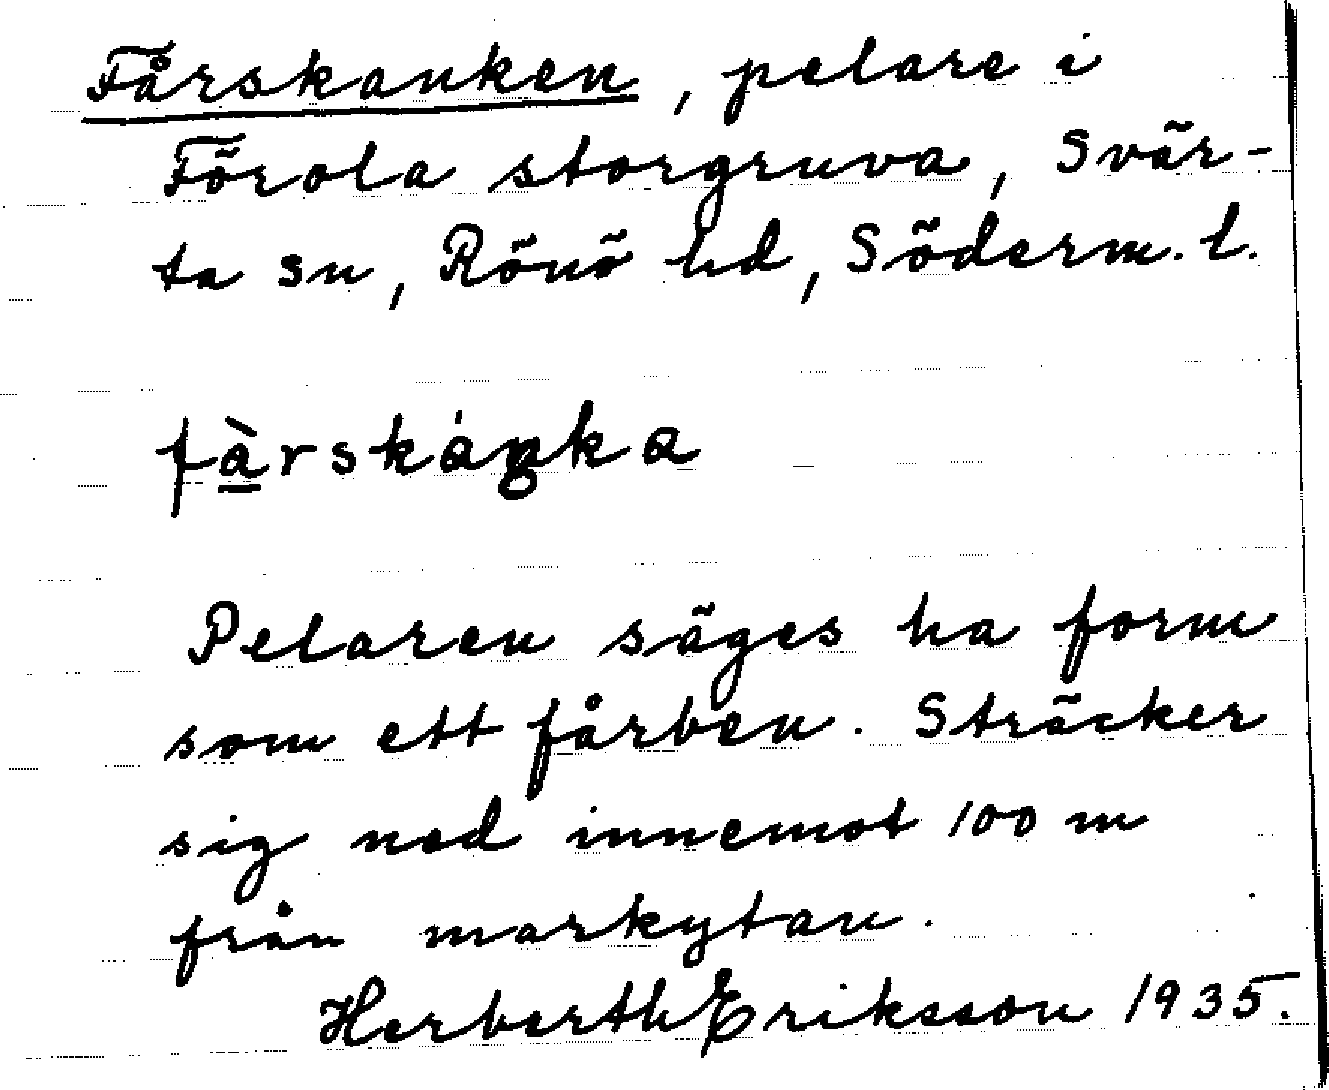 Fårskanken, pelare i
Förola storgruva, Svär-
ta sn, Rönö hd, Söderm. l.
fà̱rskáŋka
Pelaren säges ha form
som ett fårben. Sträcker
sig ned innemot 100 m
från markytan.
Herberth Eriksson 1935.